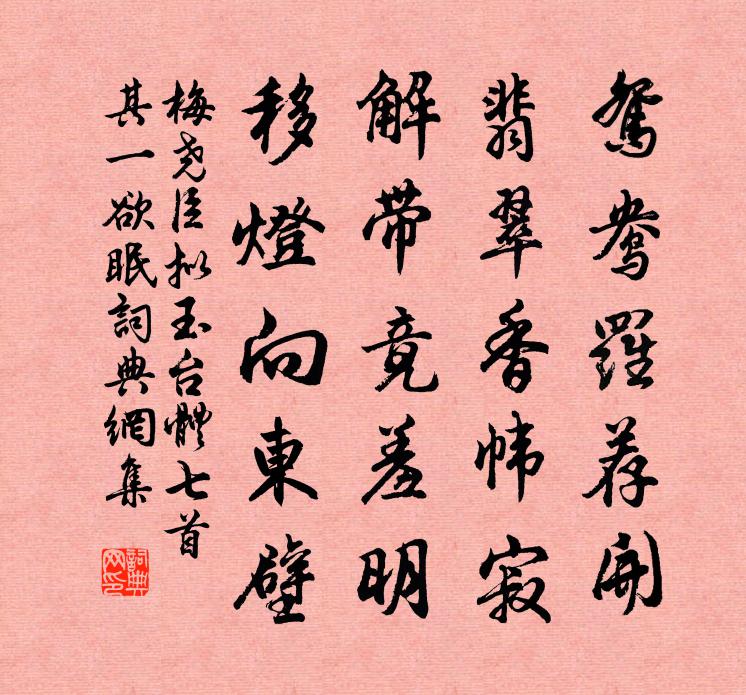 鸳鸯羅荐開
翡翠香帏寂
解带竟羞明
移燈向東壁
梅尧臣拟玉台體七首
其一欲眠詞典網集
詞典網印